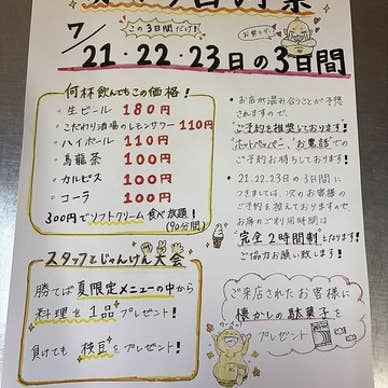 7/21・22・23日の3日間
この3日間だけ!!
お祭りだ!
何杯飲んでもこの価格!
・生ビール 180円
・こだわり酒場のレモンサワー 110円
・ハイボール 110円
・烏龍茶 100円
・カルピス 100円
・コーラ 100円
300円でソフトクリーム食べ放題!
(90分間)
・お店が混み合うことが予想
されますので、
ご予約を推奨しております!
ホットペッパー、お電話での
ご予約お待ちしております!
・21.22.23日の3日間に
つきましては、次のお客様の
ご予約を控えておりますので、
お席のご利用時間は
"完全2時間制"となります!
ご協力お願い致します!
スタッフとじゃんけん大会
勝てば夏限定メニューの中から
料理を1品プレゼント!
負けても枝豆をプレゼント!
ご来店されたお客様に
懐かしの駄菓子を
プレゼント